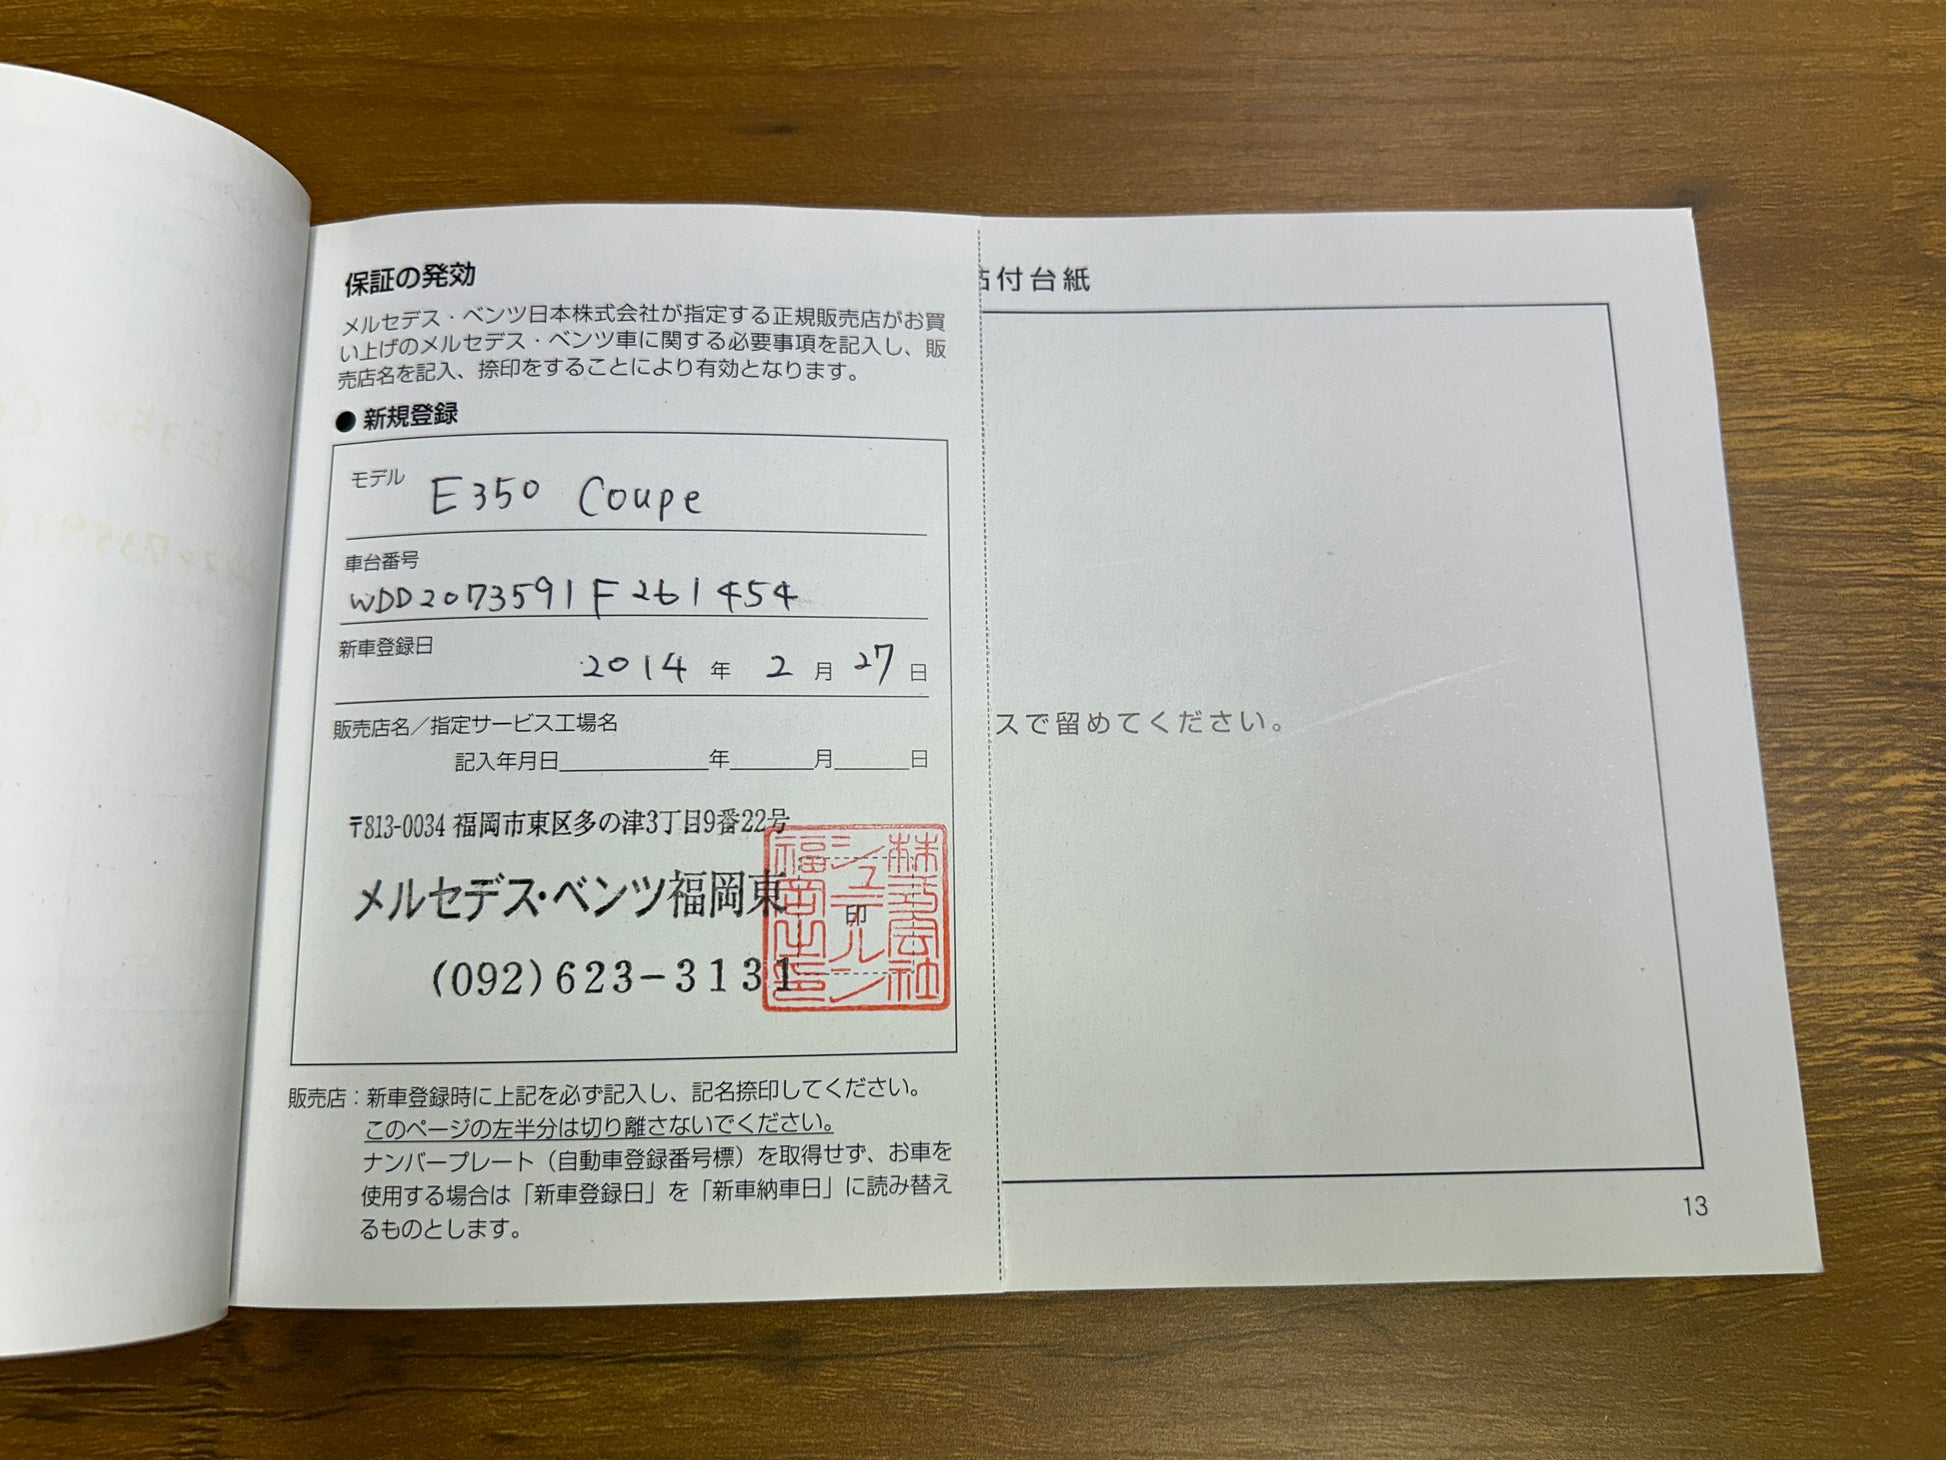 保証の発効
メルセデス・ベンツ日本株式会社が指定する正規販売店がお買
い上げのメルセデス・ベンツ車に関する必要事項を記入し、販
売店名を記入、捺印をすることにより有効となります。
● 新規登録
モデル E350 Coupe
車台番号
WDD2073591F261454
新車登録日
2014 年 2 月 27 日
販売店名／指定サービス工場名
記入年月日 年 月 日
〒813-0034 福岡市東区多の津3丁目9番22号
メルセデス・ベンツ福岡東
(092)623-3131
印
株式会社
シュテルン
福岡
販売店：新車登録時に上記を必ず記入し、記名捺印してください。
このページの左半分は切り離さないでください。
ナンバープレート（自動車登録番号標）を取得せず、お車を
使用する場合は「新車登録日」を「新車納車日」に読み替え
るものとします。
付台紙
スで留めてください。
13